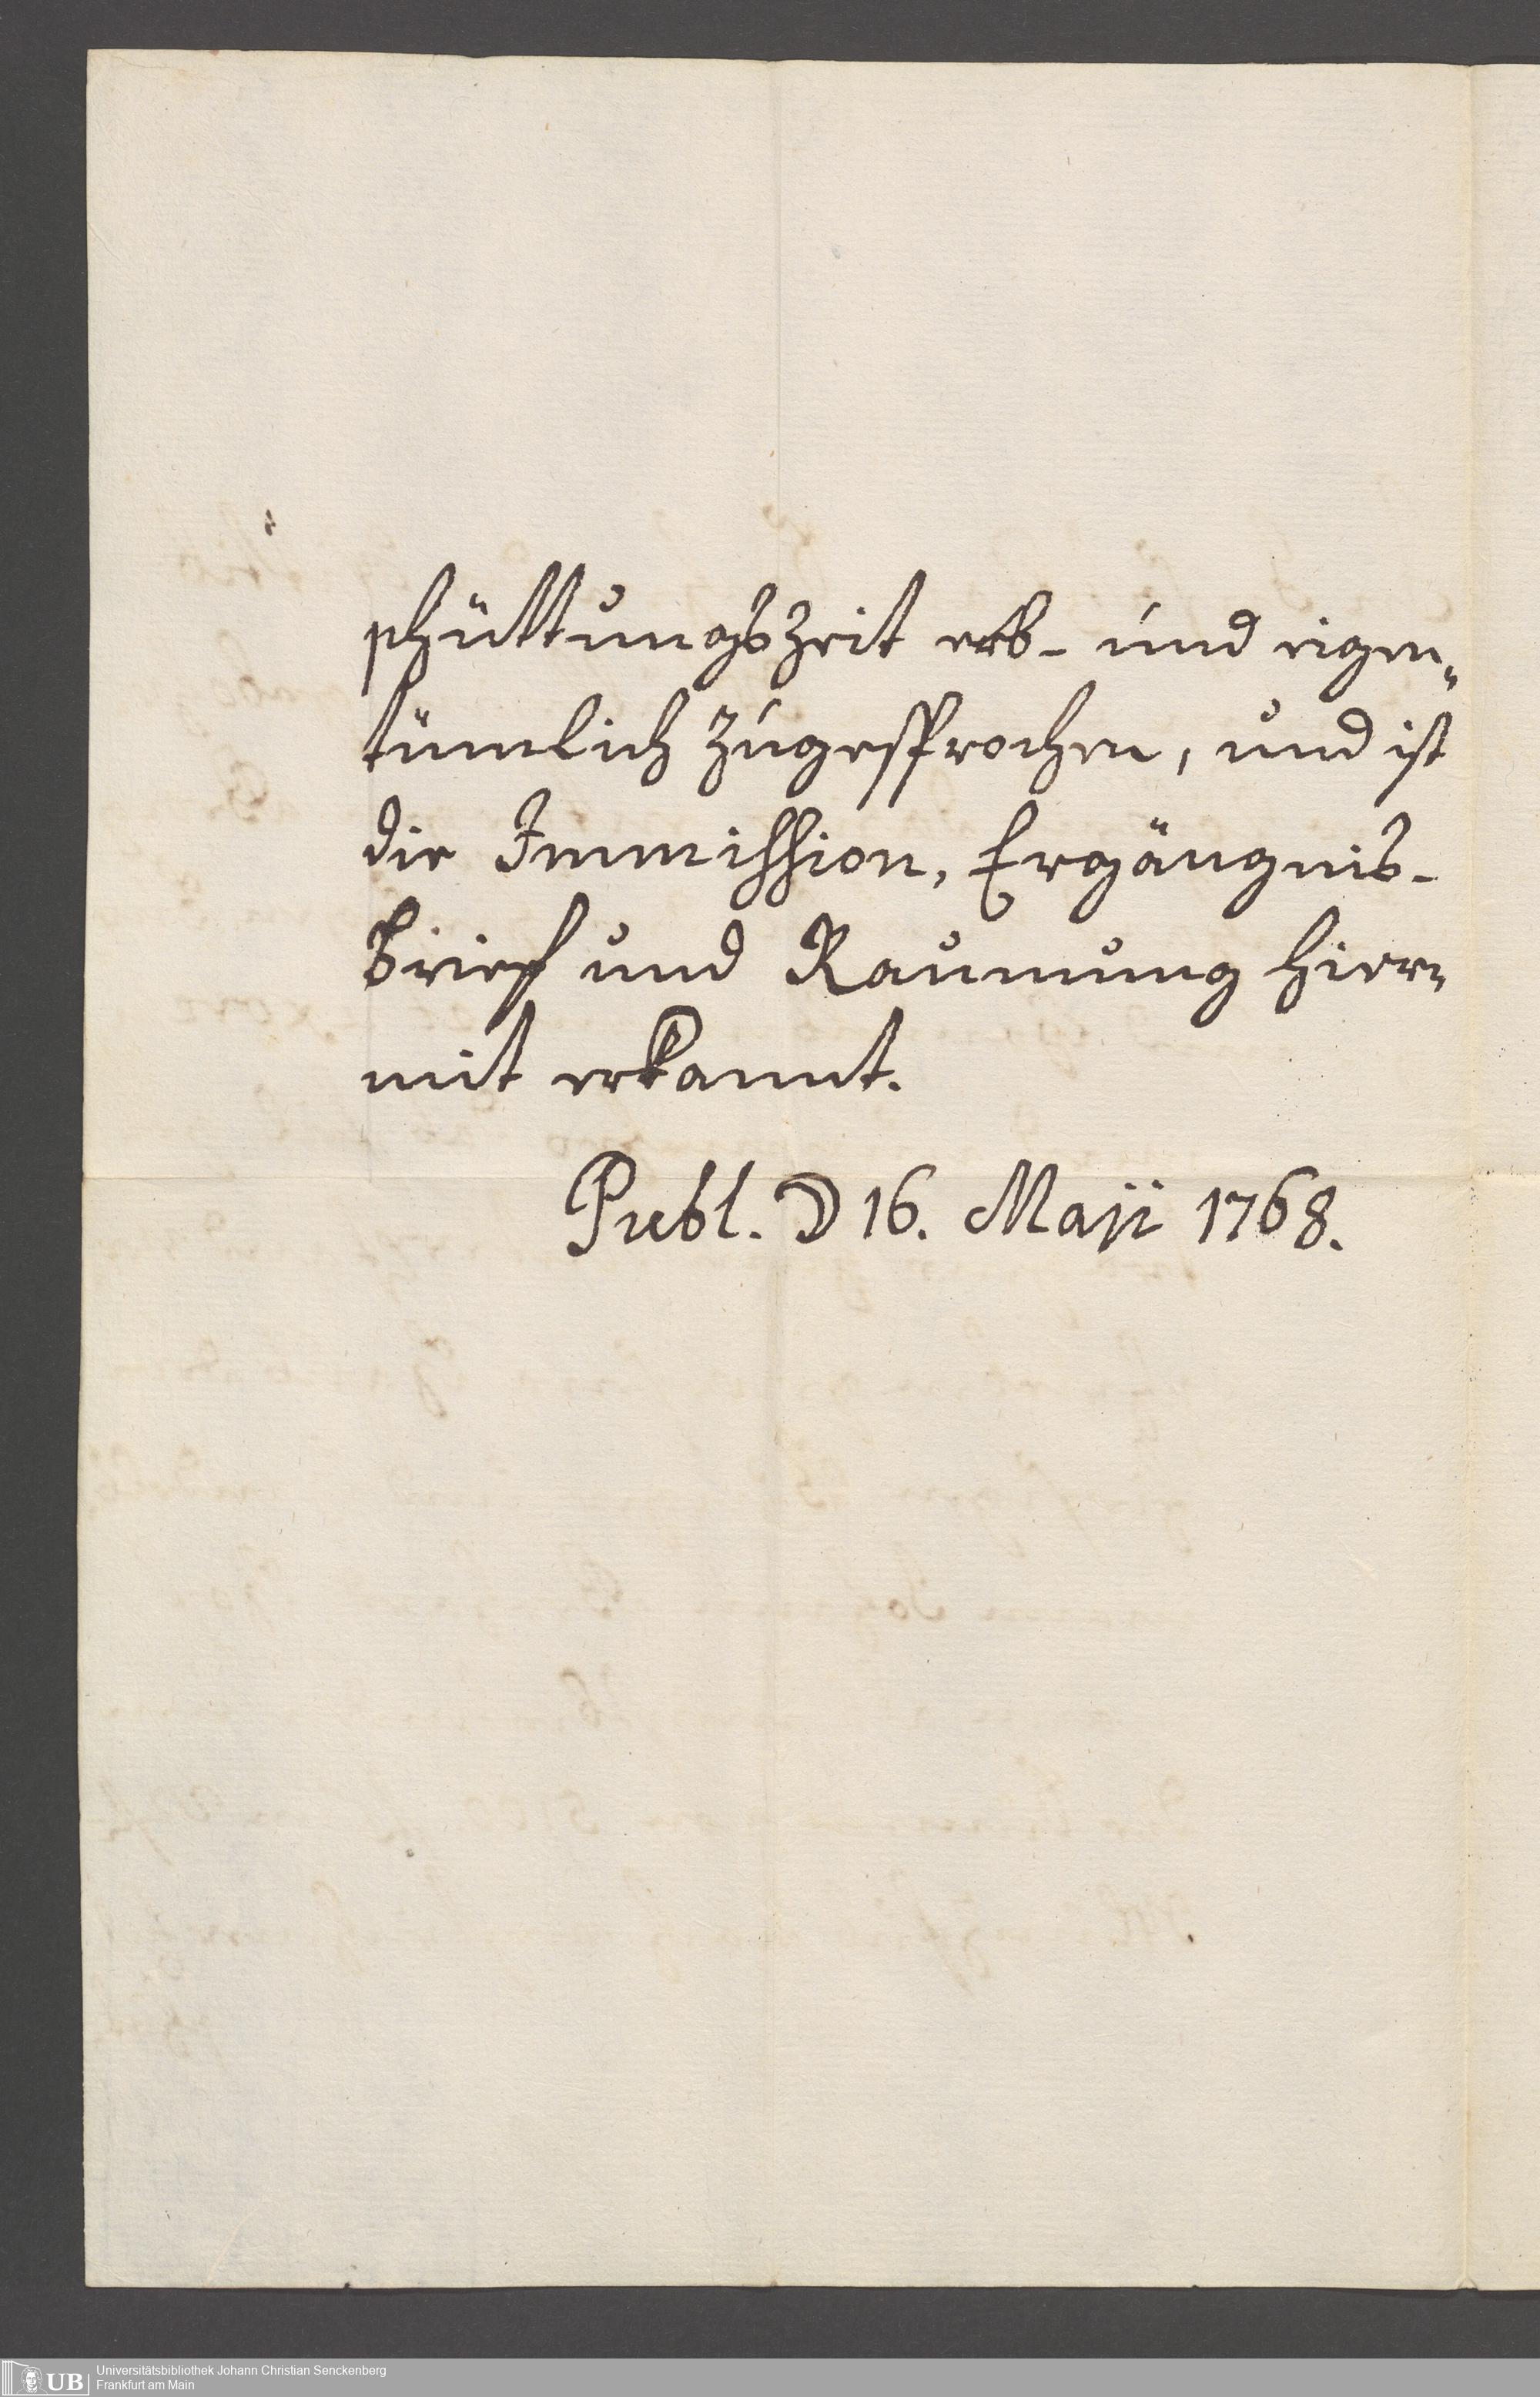 schüttungszeit erb- und eigen„
tümlich zugesprochen, und ist
die Immission, Ergängnis-
brief und Raumung hier„
mit erkannt.
Publ. D 16. Maji 1768.
UB
Universitätsbibliothek Johann Christian Senckenberg
Frankfurt am Main